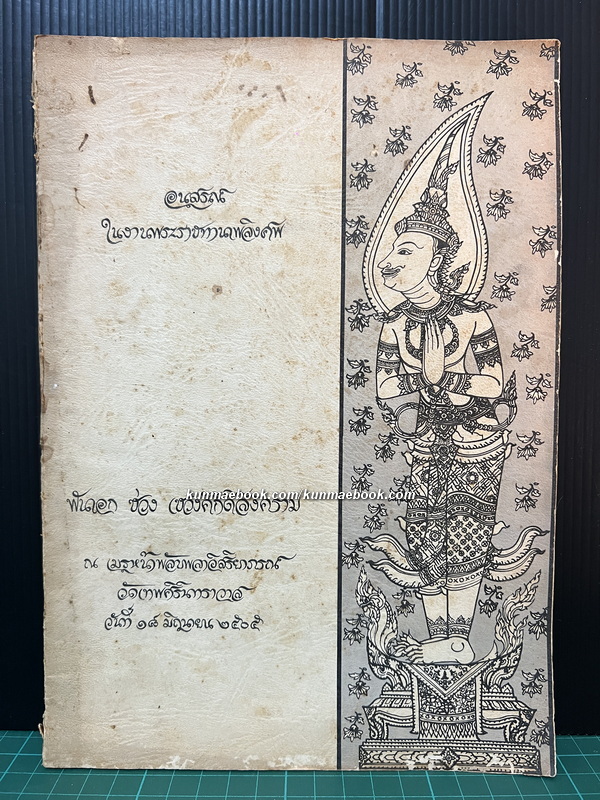 อนุสรณ์
ในงานพระราชทานเพลิงศพ
พันเอก ช่วง เชวงศักดิ์สงคราม
kunmaebook.com/kunmaebook.com
ณ เมรุหน้าพลับพลาอิสริยาภรณ์
วัดเทพศิรินทราวาส
วันที่ ๑๘ มิถุนายน ๒๕๐๕